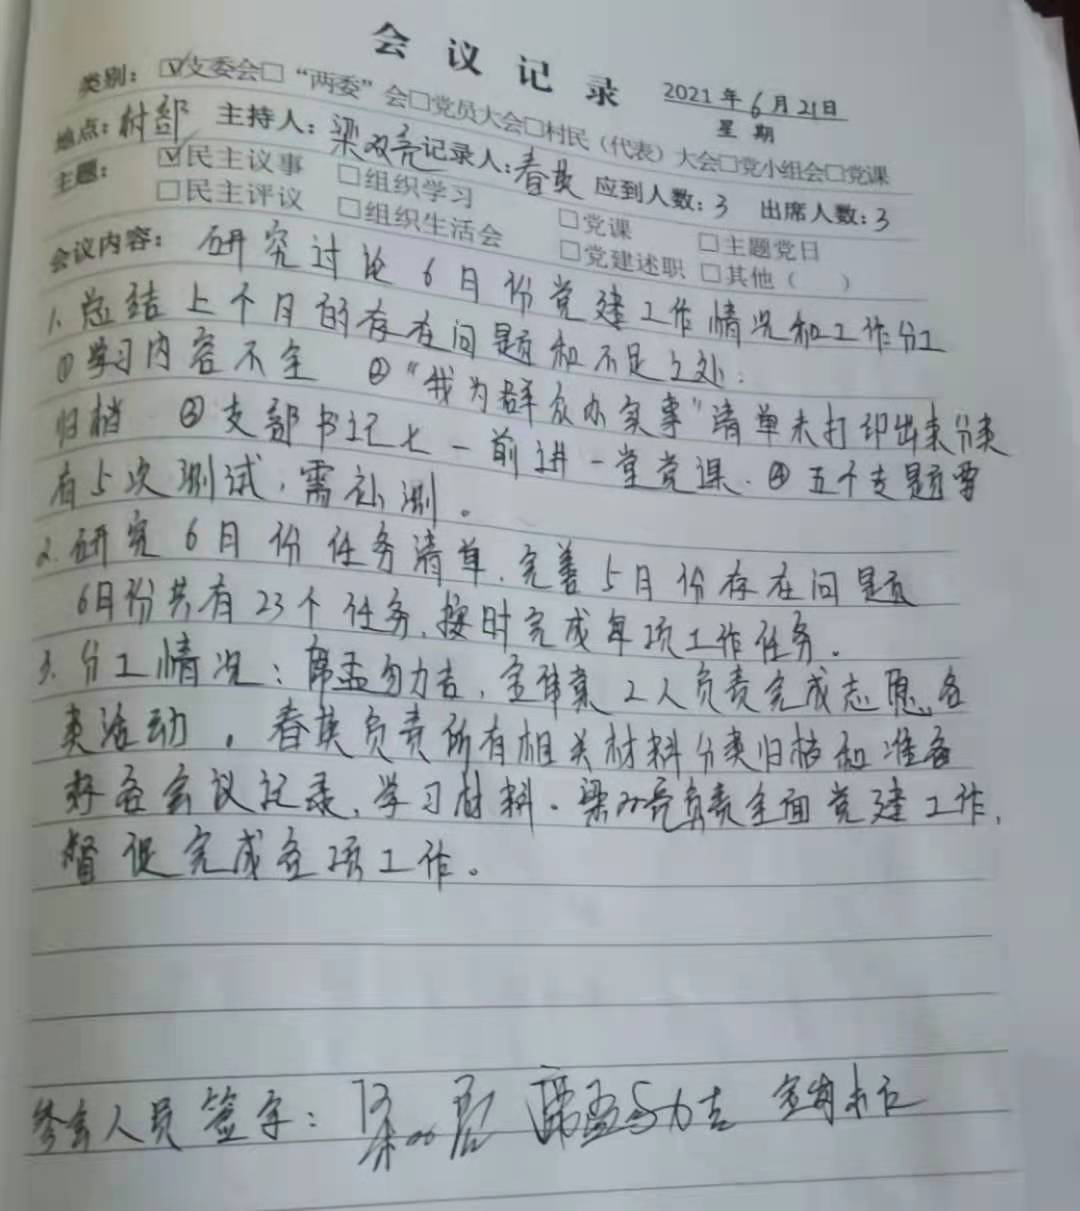 会议记录
2021年6月21日
星期
类别：☑支委会□“两委”会□党员大会□村民（代表）大会□党小组会□党课
地点：村部 主持人：梁双亮 记录人：春英 应到人数：3 出席人数：3
主题：☑民主议事 □组织学习 □党课 □主题党日
□民主评议 □组织生活会 □党建述职 □其他（ ）
会议内容：研究讨论6月份党建工作情况和工作分工
1. 总结上个月的存在问题和不足之处：
①学习内容不全 ②“我为群众办实事”清单未打印出来分类
归档 ③支部书记七一前讲一堂党课. ④五个专题要
有5次测试，需补测。
2. 研究6月份任务清单，完善5月份存在问题
6月份共有23个任务，按时完成每项工作任务。
3. 分工情况：席孟勿力吉，2人负责完成志愿各
类活动，春英负责所有相关材料分类归档和准备
好各会议记录，学习材料。梁双亮负责全面党建工作，
督促完成各项工作。
参会人员签字：梁双亮 席孟勿力吉